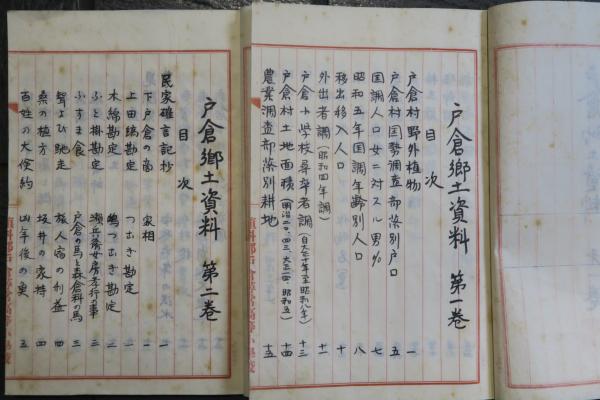 戸倉郷土資料 第一巻
目次
戸倉村野外植物 一
戸倉村国勢調査部落別戸口 五
国調人口女ニ対スル男% 七
昭和五年国調年齢別人口 八
移出移入人口 十
外出者調(昭和四年調) 十一
戸倉小学校尋卒者調(自大正十年至昭和八年) 十三
戸倉村土地面積 十四
農業調査部落別耕地 十五
戸倉郷土資料 第二巻
目次
民家確言記抄 一
下戸倉の商 家相 一
上田縞勘定 つむぎ勘定 二
木綿勘定 嶋つむぎ勘定 二
ふと掛勘定 孝行の事 三
ふすま食 戸倉の馬と森倉科の馬 三
聟よび馳走 旅人宿の利益 四
桑の植方 坂井の家持 四
百姓の大倹約 凶年後の奥 五